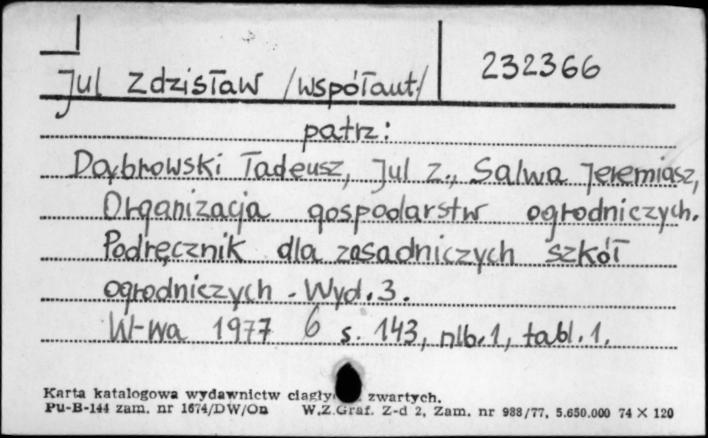 Jul Zdzisław /współaut/
232366
patrz:
Dąbrowski Tadeusz, Jul Z., Salwa Jeremiasz,
Organizacja gospodarstw ogrodniczych.
Podręcznik dla zasadniczych szkół
ogrodniczych. Wyd. 3.
W-wa 1977 6 s. 143, nlb. 1, tabl. 1.
Karta katalogowa wydawnictw ciągły zwartych.
Pu-B-144 zam. nr 1674/DW/On W.Z.Graf. Z-d 2, Zam. nr 988/77, 5.650.000 74 X 120